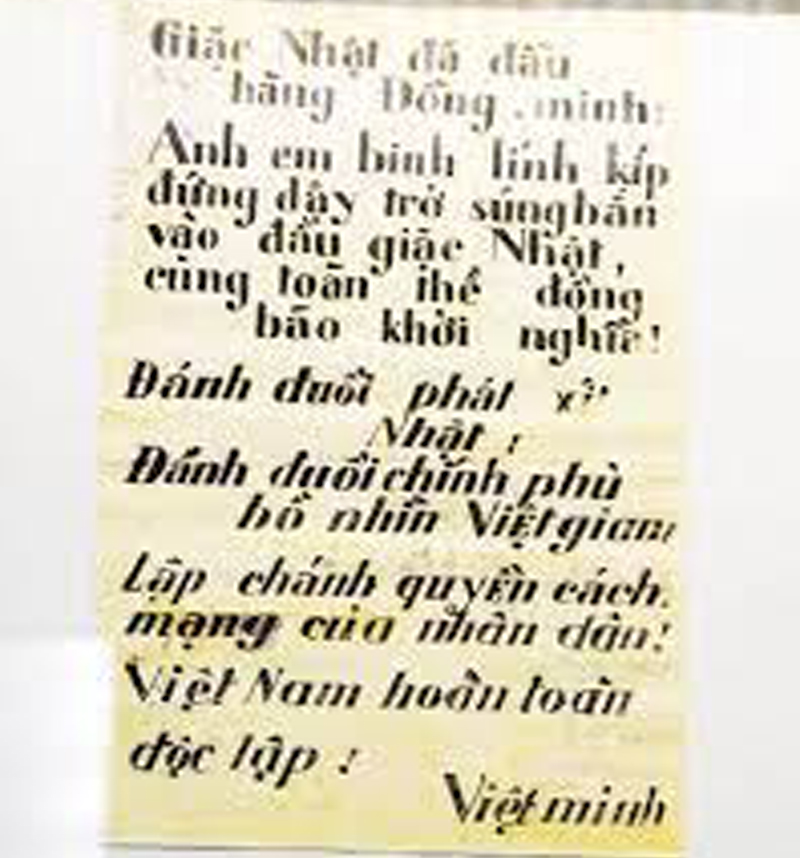 Giặc Nhật đã đầu
hàng Đồng minh:
Anh em binh lính kíp
đứng dậy trở súng bắn
vào đầu giặc Nhật,
cùng toàn thể đồng
bào khởi nghĩa!
Đánh đuổi phát xít
Nhật!
Đánh đuổi chính phủ
bồ nhìn Việt gian!
Lập chánh quyền cách
mạng của nhân dân!
Việt Nam hoàn toàn
độc lập!
Việt minh